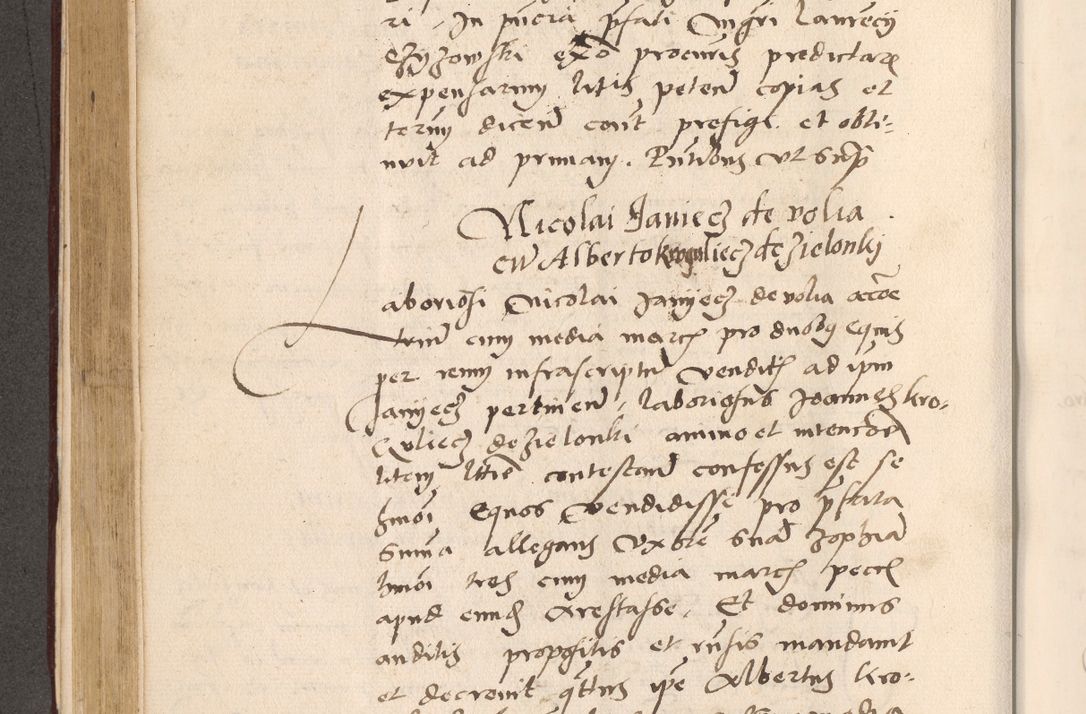 ri. In pñcia p̃fati Mgri Laurecÿ
Czyzowski ex° procuris predictar
expensarum litis peteñ copias et
termũ diceñ cont prefigi et obti-
nuit ad primam. Pñtibus vt sup
Nicolai Janiecz de volia
cũ Alberto kroguliecz de zielonkj
Laboriosi Nicolai Janyecz de volia accõe
trium cum media marc pro duobus equis
per reum infrascriptũ vendit ad ipm
Janyecz pertineñ, laboriosus Joannes kro-
guliecz de zielonki animo et intencõe
litem litte contestand confessus est se
hmõi equos vendidisse pro p̃fata
summa allegans vxorẽ suã Zophiã
hmõi tres cum media marc pecc
apud eundẽ arestasse. Et dominus
auditis propositis et rñsis mandauit
et decreuit qttus ipe Albertus kro-